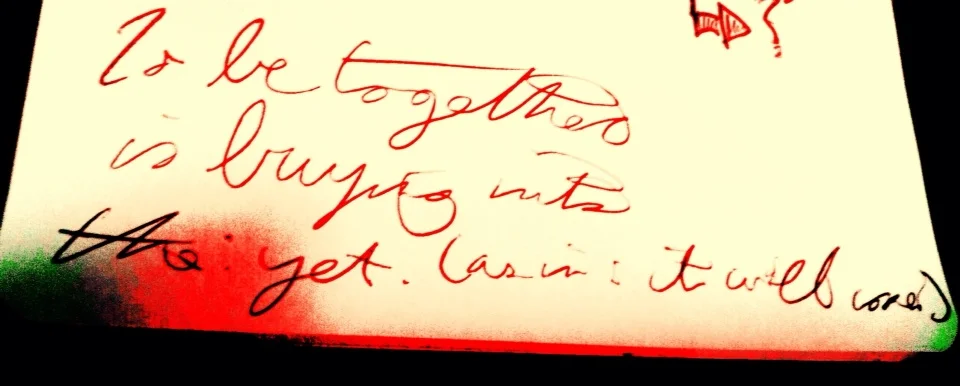 ?
To be together
is buying into
the yet. (as in: it will come)